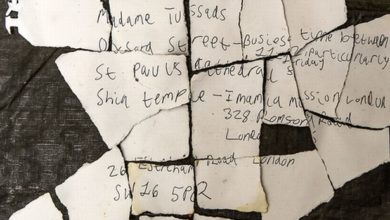 Madame Tussads
Oxford Street - Busiest time between
11-12, particularly
St Pauls Cathedral Friday
Shia temple - Imamia mission London
328 Romford Road
London
26 Estreham Road London
SW16 5PQ